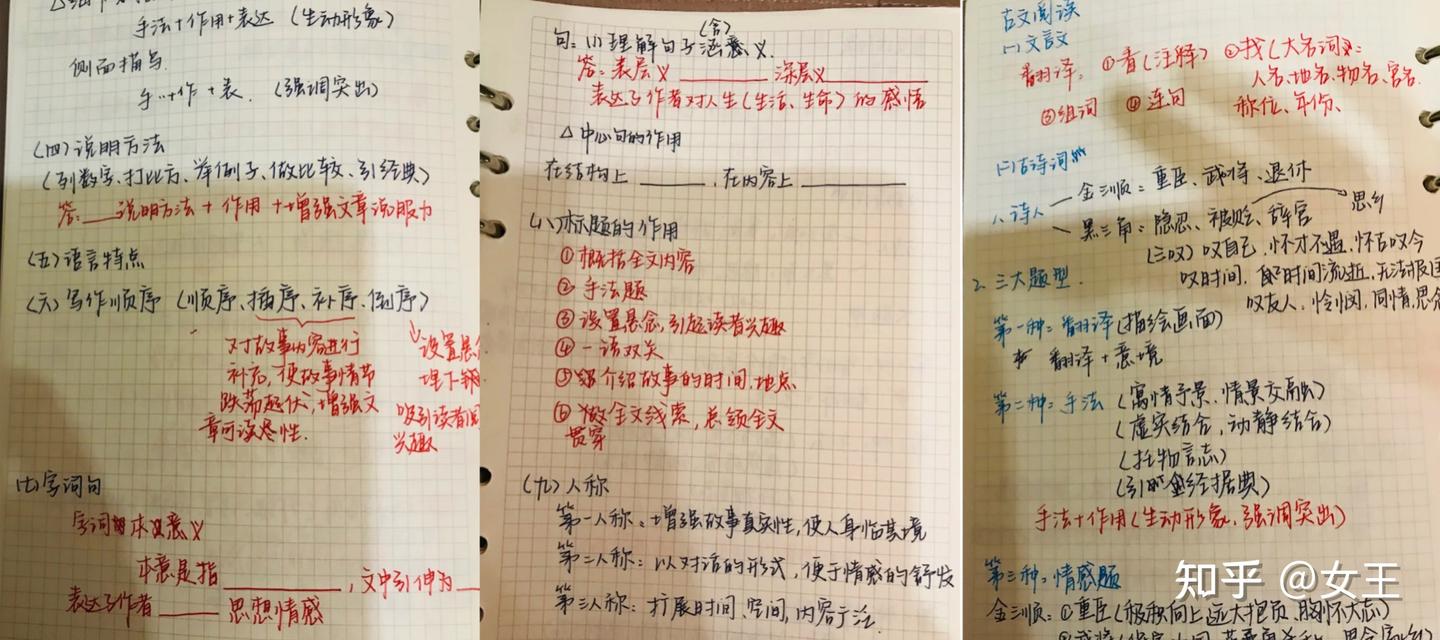 手法+作用+表达（生动形象）
侧面描写
手…+作+表.（强调突出）
（四）说明方法
（列数字、打比方、举例子、做比较、引经典）
答：___说明方法+作用+增强文章说服力
（五）语言特点
（六）写作顺序（顺序、插序、补序、倒序）
对故事内容进行
补充，使故事情节
跌荡起伏，增强文
章可读性.
设置悬
埋下
吸引读者
兴趣
（七）字词句
字词 本义意义
本意是指______，文中引伸为__
表达了作者____思想情感
句：（1）理解句子涵（含）义.
答：表层义______深层义______
表达了作者对人生（生活、生命）的感悟
△中心句的作用
在结构上_____，在内容上_______
（八）标题的作用
①概括全文内容
②手法题
③设置悬念，引起读者兴趣
④一语双关
⑤介绍故事的时间、地点
⑥做全文线索，总领全文
贯穿
（九）人称
第一人称：增强故事真实性，使人身临其境
第二人称：以对话的形式，便于情感的舒发
第三人称：扩展时间、空间，内容广泛.
古文阅读
（一）文言文
翻译：①看（注释）②找（大名词）：
人名、地名、物名、官名
③组词 ④连句 称位、年份、
（二）古诗词
1、诗人
金三顺：重臣、武将、退休
黑三角：隐忍、被贬、辞官
思乡
（三叹）叹自己，怀才不遇，怀古叹今
叹时间，时间流逝，无法报国
叹友人，怜悯，同情，思念
2、三大题型.
第一种：翻译（描绘画面）
翻译+意境
第二种：手法（寓情于景、情景交融）
（虚实结合，动静结合）
（托物言志）
（引经据典）
手法+作用（生动形象、强调突出）
第三种：情感题
金三顺：①重臣（积极向上远大抱负，胸怀大志）
知乎 @女王